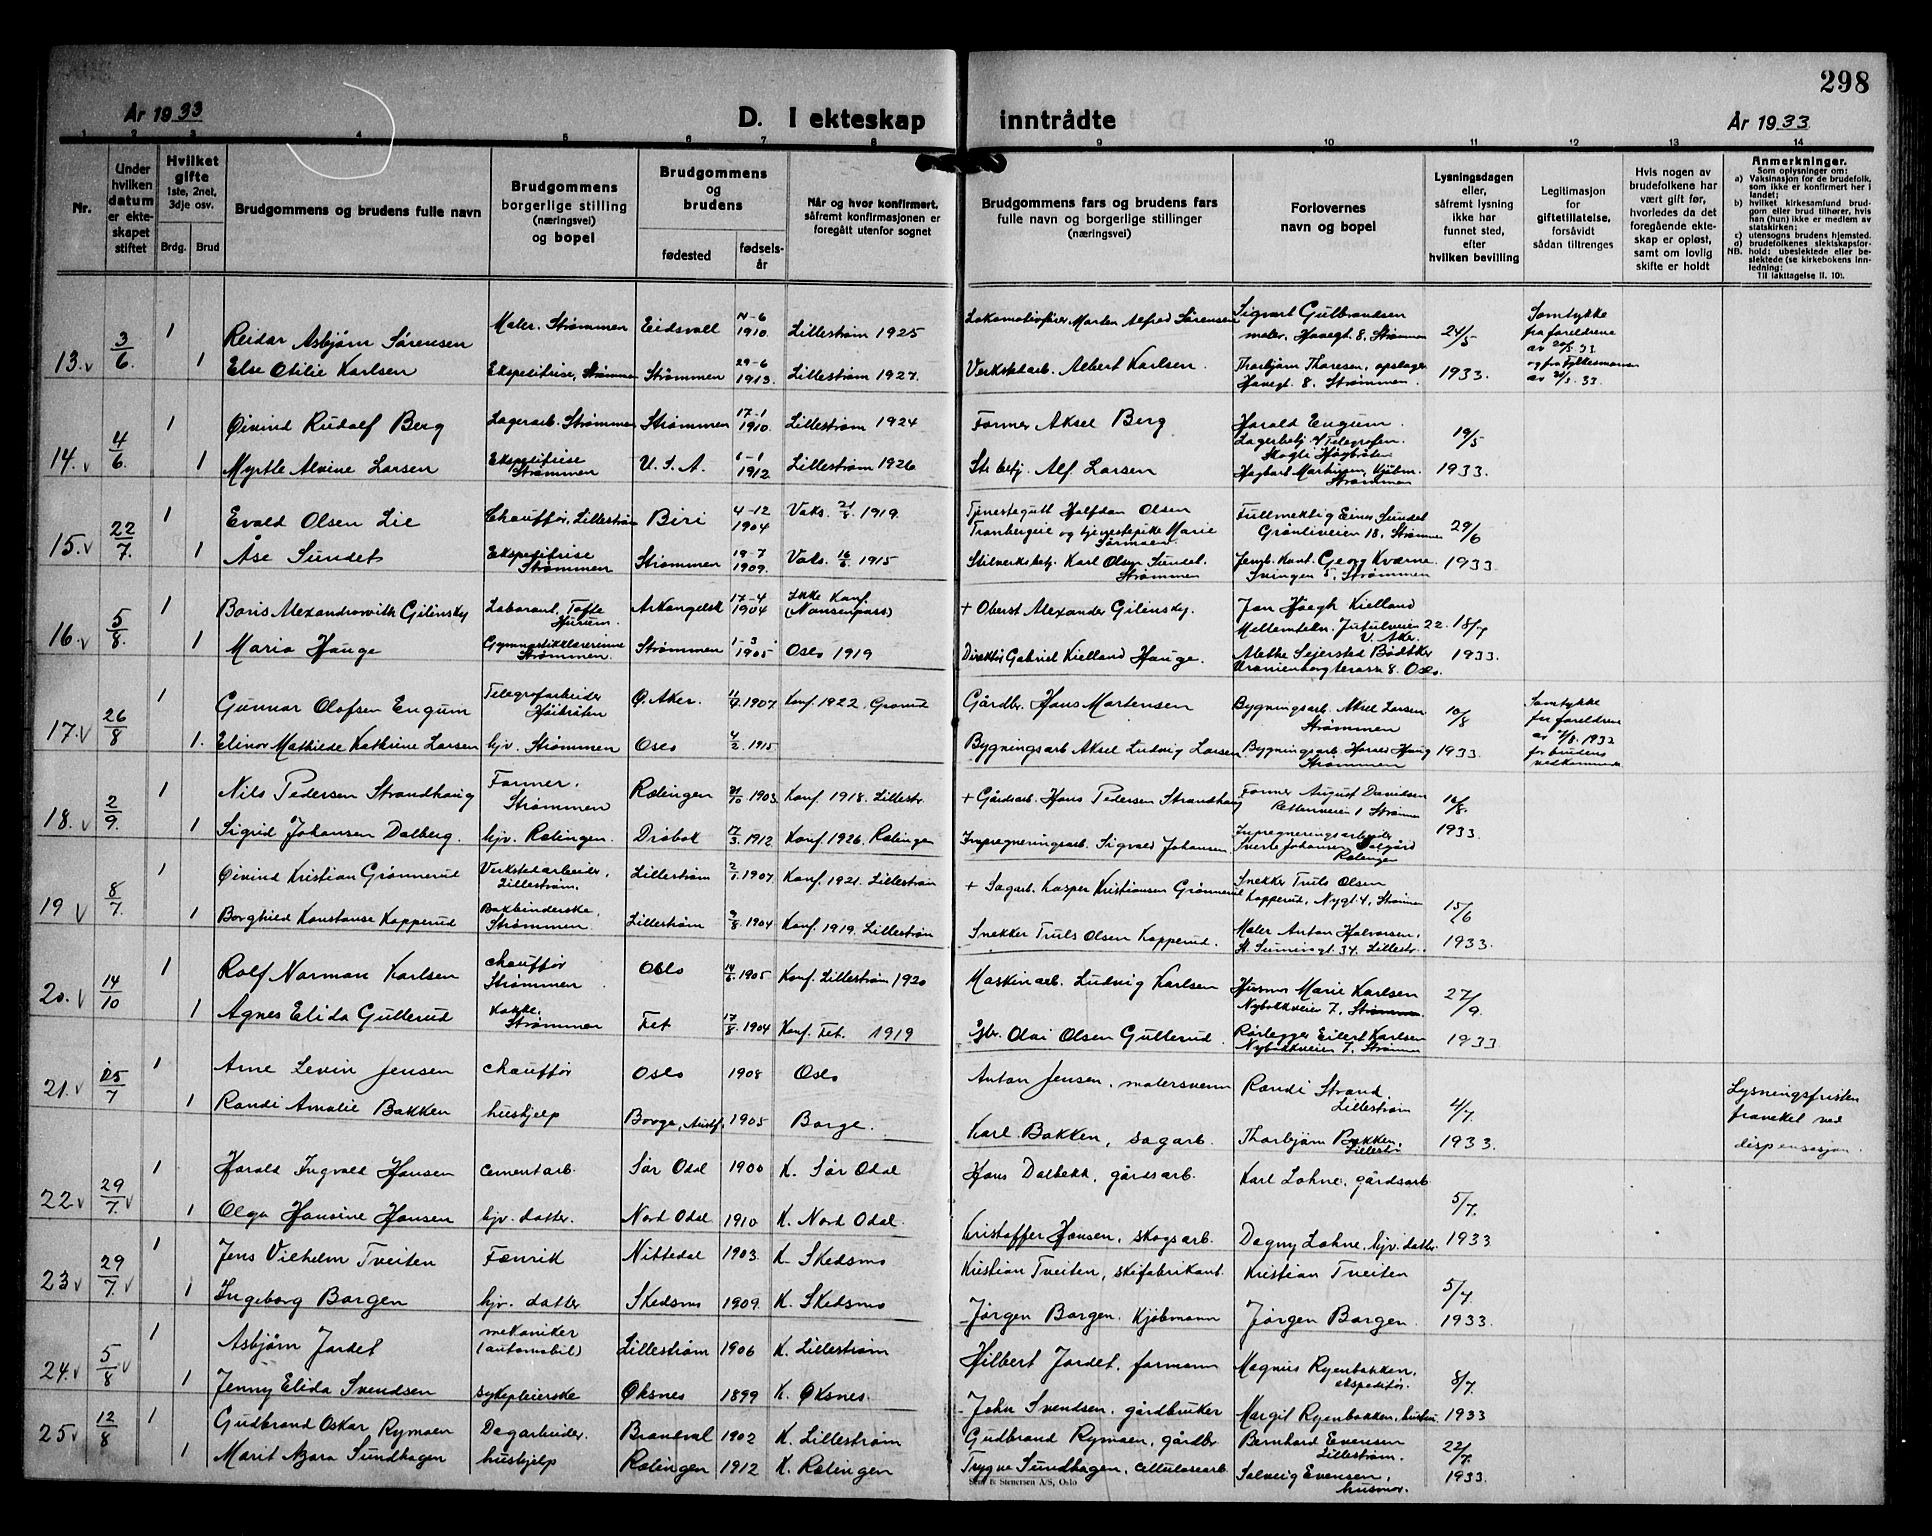 298
År 1933
D. I ekteskap inntrådte
År 1933
1 2 3 4 5 6 7 8 9 10 11 12 13 14
Nr.
Under hvilken datum er ekteskapet stiftet
Hvilket gifte 1ste, 2net, 3dje osv.
Brdg. Brud
Brudgommens og brudens fulle navn
Brudgommens borgerlige stilling (næringsvei) og bopel
Brudgommens og brudens
fødested
fødselsår
Når og hvor konfirmert, såfremt konfirmasjonen er foregått utenfor sognet
Brudgommens fars og brudens fars fulle navn og borgerlige stillinger (næringsvei)
Forlovernes navn og bopel
Lysningsdagen eller, såfremt lysning ikke har funnet sted, efter hvilken bevilling
Legitimasjon for giftetillatelse, forsåvidt sådan tiltrenges
Hvis nogen av brudefolkene har vært gift før, hvorledes da det foregående ekteskap er opløst, samt om lovlig skifte er holdt
Anmerkninger.
Som oplysninger om:
a) Vaksinasjon for de brudefolk, som ikke er konfirmert her i landet;
b) hvilket kirkesamfund brudgom eller brud tilhører, hvis han (hun) ikke er medlem av statskirken;
c) utensogns brudens hjemsted.
d) brudefolkenes slektskapsforhold; ubeslektede eller beslektede (se kirkebokens innledning;
NB.
Til iakttagelse II. 10).
13. v 3/6 1 Reidar Asbjørn Sørensen Maler. Strømmen Eidsvoll 1910. Lillestrøm 1925 Lokomotivfører Marten Alfred Sørensen Sigvart Gulbrandsen maler, Havegt. 8, Strømmen 24/5 Samtykke fra foreldrene
1 Else Otilie Karlsen Ekspeditrise, Strømmen Strømmen 29-6 1913. Lillestrøm 1927. Verkstedarb. Albert Karlsen. Thorbjørn Thoresen, opslager Havegt. 8. Strømmen. 1933. og fra Fylkesmannen
14. v 4/6. 1 Øivind Rudolf Berg Lagerarb. Strømmen Strømmen 17-1 1910. Lillestrøm 1924 Former Aksel Berg Harald Engum. Lagerbetj. v/ Telegrafen. 19/5
1 Myrtle Alvine Larsen Ekspeditrise Strømmen U. S. A. 6-1 1912 Lillestrøm 1926 St. betj. Alf Larsen Hagbart Martinsen, Kjøbm. Strømmen 1933.
15. v 22/7. 1 Evald Olsen Lie Chauffør, Lillestrøm Biri 4-12 1904 Vaks. 1919. Tjenestegutt Halfdan Olsen Tranbergeie og tjenestepike Marie Fullmektig Einar Sundet Grønliveien 18, Strømmen 29/6
1 Åse Sundet Ekspeditrise Strømmen Strømmen 19-7 1909. Vaks. 1915 Karl Olsen Sundet. Strømmen Georg Kværne Svingen 5, Strømmen 1933.
16. v 5/8. 1 Boris Alexandrowith Gilinsky Laborant, Tofte Hurum. Arkangelsk 17-4 1904 Ikke Konf. (Nansenpass) + Oberst Alexander Gilinsky. Jan Høegh Kielland Jutulveien 22. V. Aker. 18/7
1 Maria Hauge Gymnastikklærerinne Strømmen. Strømmen 1-3 1905 Oslo 1919 Direktør Gabriel Kielland Hauge. Alethe Sejersted Bødtker Uranienborgterasse 8. Oslo. 1933.
17. v 26/8 1 Gunnar Olafsen Engum Telegrafarbeider Høibråten Ø. Aker. 1907 Konf. 1922. Grorud Gårdbr. Hans Martensen Bygningsarb. Aksel Larsen Strømmen 10/8 Samtykke fra foreldrene
1. Elinor Mathilde Kathrine Larsen hjv. Strømmen Oslo 4/2. 1915 Bygningsarb Aksel Ludvig Larsen Bygningsarb. Harald Haug Strømmen 1933 for brudens vedkommende
18. v 2/9. 1 Nils Pedersen Strandhaug Former. Strømmen Rælingen 21/10 1903. Konf. 1918. Lillestr. + Gårdsarb. Hans Pedersen Strandhaug Former August Davidsen 1 Strømmen 16/8.
1 Sigrid Johansen Dalberg. hjv. Rælingen. Drøbak 17/3. 1912 Konf. 1926. Rælingen Impregneringsarb. Sigvald Johansen. Impregneringsarbeider Sverre Johansen Rælingen 1933
19 v 8/7. 1 Øivind Kristian Grønnerud Verkstedarbeider, Lillestrøm. Lillestrøm 1907. Konf. 1921. Lillestrøm + Sagarb. Kasper Kristiansen Grønnerud Snekker Truls Olsen Kopperud, Nygt. 4, Strømmen 15/6
1 Borghild Konstanse Kopperud Bokbinderske. Strømmen Lillestrøm 1904 Konf. 1919. Lillestrøm Snekker Truls Olsen Kopperud. Maler Anton Halvorsen. 34. Lillestr. 1933.
20. v 14/10 1 Rolf Norman Karlsen chauffør Strømmen Oslo 1905 Konf. Lillestrøm 1920 Maskinarb. Ludvig Karlsen Husmor Marie Karlsen Nybakkveien 7, Strømmen. 27/9
1 Agnes Elida Gullerud Kokke. Strømmen Fet 17/8. 1904 Konf. Fet. 1919 Olai Olsen Gullerud. Rørlegger Eilert Karlsen Nybakkveien 7. Strømmen 1933
21. v 25/7 1 Arne Levin Jensen chauffør Oslo 1908 Oslo Anton Jensen, malersvenn Randi Strand. Lillestrøm 4/7 Lysningsfristen
1 Randi Amalie Bakken hushjelp Borge, Østf. 1905 Borge. Karl Bakken, sagarb. Thorbjørn Bakken, Lillestr. 1933. fraveket ved dispensasjon.
22 v 29/7. v 1 Harald Ingvald Hansen cementarb. Sør Odal 1900 K. Sør Odal Hans Dalbekk, gårdsarb. Karl Lohne, gårdsarb 5/7.
1 Olga Hansine Hansen hjv. datter. Nord Odal 1910 K. Nord Odal. Kristoffer Hansen, skogsarb. Dagny Lohne, hjv. datter. 1933
23 v 29/7 v 1 Jens Vilhelm Tveiten Fænrik Nittedal 1903. K. Skedsmo Kristian Tveiten, skifabrikant. Kristian Tveiten 5/7
1 Ingeborg Borgen hjv. datter Skedsmo 1909. K. Skedsmo Jørgen Borgen. Kjøbmann Jørgen Borgen. 1933.
24. v 5/8 v 1 Asbjørn Jordet mekaniker (automobil) Lillestrøm 1906 K. Lillestrøm Hilbert Jordet, formann Magnus Ryenbakken, ekspeditør. 8/7.
1 Jenny Elida Svendsen sykepleierske Øksnes 1899 K. Øksnes. John Svendsen, gårdbruker Margit Ryenbakken, hustru 1933
25 v 12/8 1 Gudbrand Oskar Rymoen Dagarbeider. Brandval 1902 K. Lillestrøm Gudbrand Rymoen, gårdbr. Bernhard Evensen Lillestrøm. 22/7.
1 Marit Nora Sundhagen hushjelp Rælingen 1912 K. Rælingen Trygve Sundhagen, cellulosearb. Solveig Evensen, husmor. 1933.
Stenersen A/S, Oslo